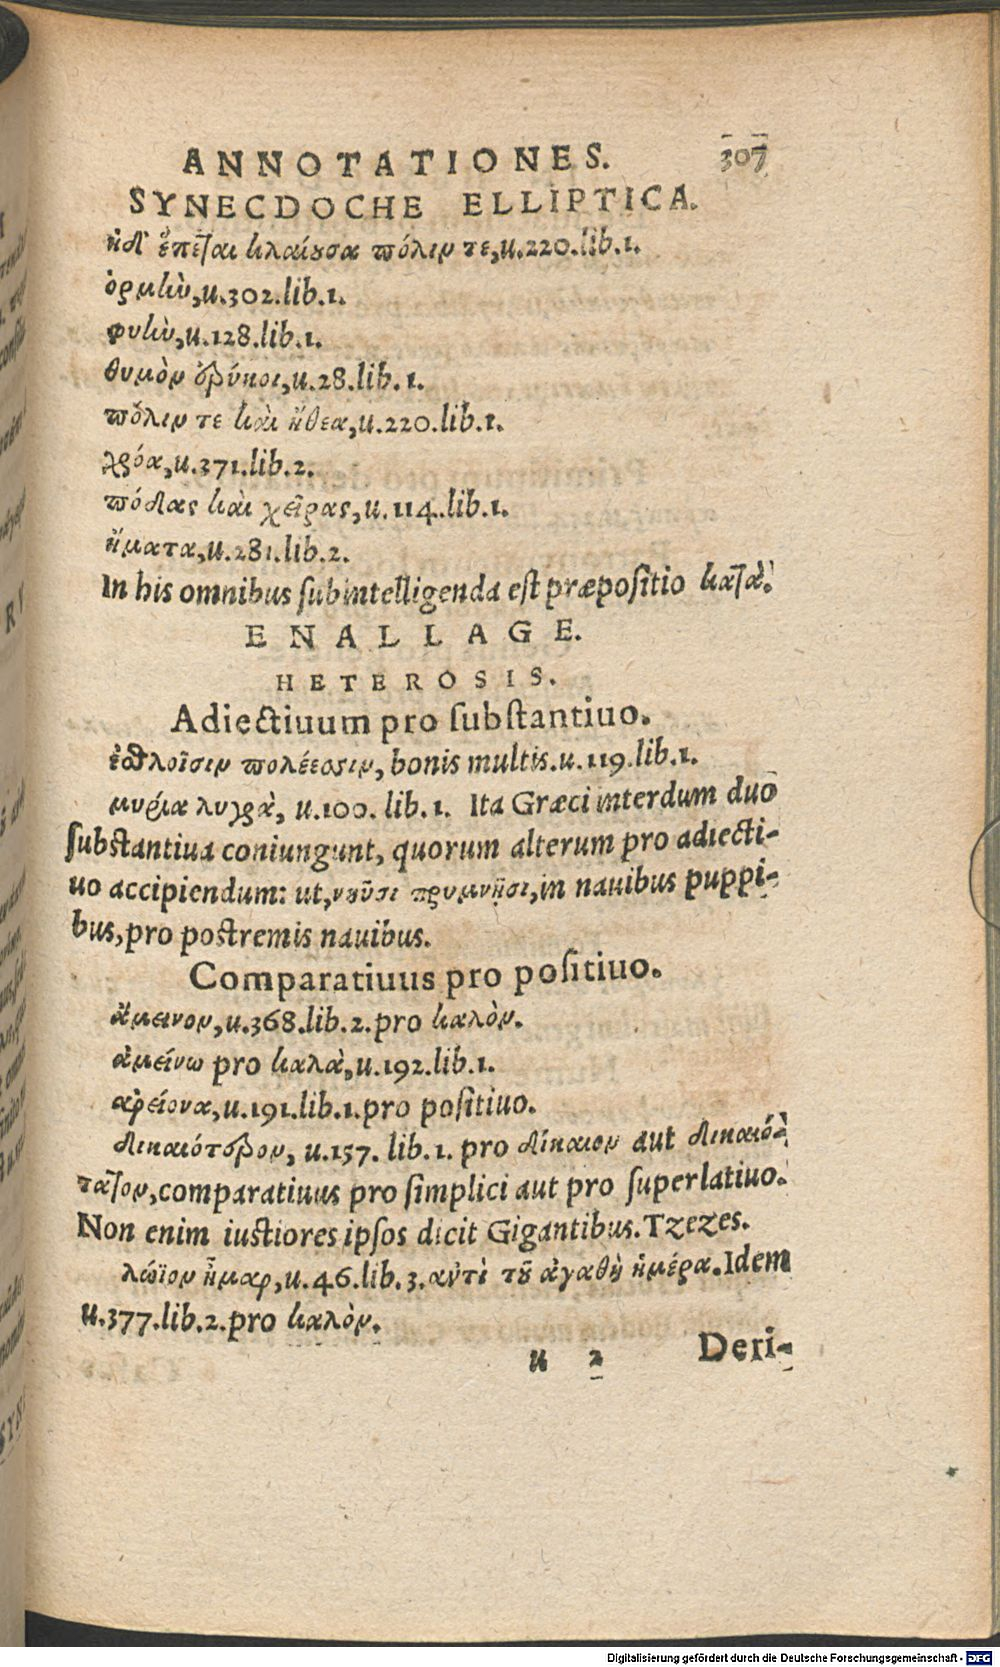 ANNOTATIONES. 307
SYNECDOCHE ELLIPTICA.
ἡδ' ἕπεται κλαίουσα πόλιν τε, u.220.lib.1.
ὁρμὴν, u.302.lib.1.
φυὴν, u.128.lib.1.
θυμὸν ἐρύκοι, u.28.lib.1.
πόλιν τε καὶ ἤθεα, u.220.lib.1.
χρόα, u.371.lib.2.
πόδας καὶ χεῖρας, u.114.lib.1.
ἤματα, u.281.lib.2.
In his omnibus subintelligenda est præpositio κατὰ.
ENALLAGE.
HETEROSIS.
Adiectiuum pro substantiuo.
ἐσθλοῖσιν πολέεσσιν, bonis multis.u.119.lib.1.
μυρία λυγρὰ, u.100. lib.1. Ita Græci interdum duo
substantiua coniungunt, quorum alterum pro adiecti-
uo accipiendum: ut, νηυσὶ πρυμνῇσι, in nauibus puppi-
bus, pro postremis nauibus.
Comparatiuus pro positiuo.
ἄμεινον, u.368.lib.2.pro καλὸν.
ἀμείνω pro καλὰ, u.192.lib.1.
ἀρείονα, u.191.lib.1.pro positiuo.
δικαιότερον, u.157. lib.1. pro δίκαιον aut δικαιό-
τατον, comparatiuus pro simplici aut pro superlatiuo.
Non enim iustiores ipsos dicit Gigantibus. Tzezes.
λώϊον ἦμαρ, u.46.lib.3. αὐτὶ τοῦ ἀγαθὴ ἡμέρα. Idem
u.377.lib.2.pro καλὸν.
u 2 Deri-
Digitalisierung gefördert durch die Deutsche Forschungsgemeinschaft - DFG